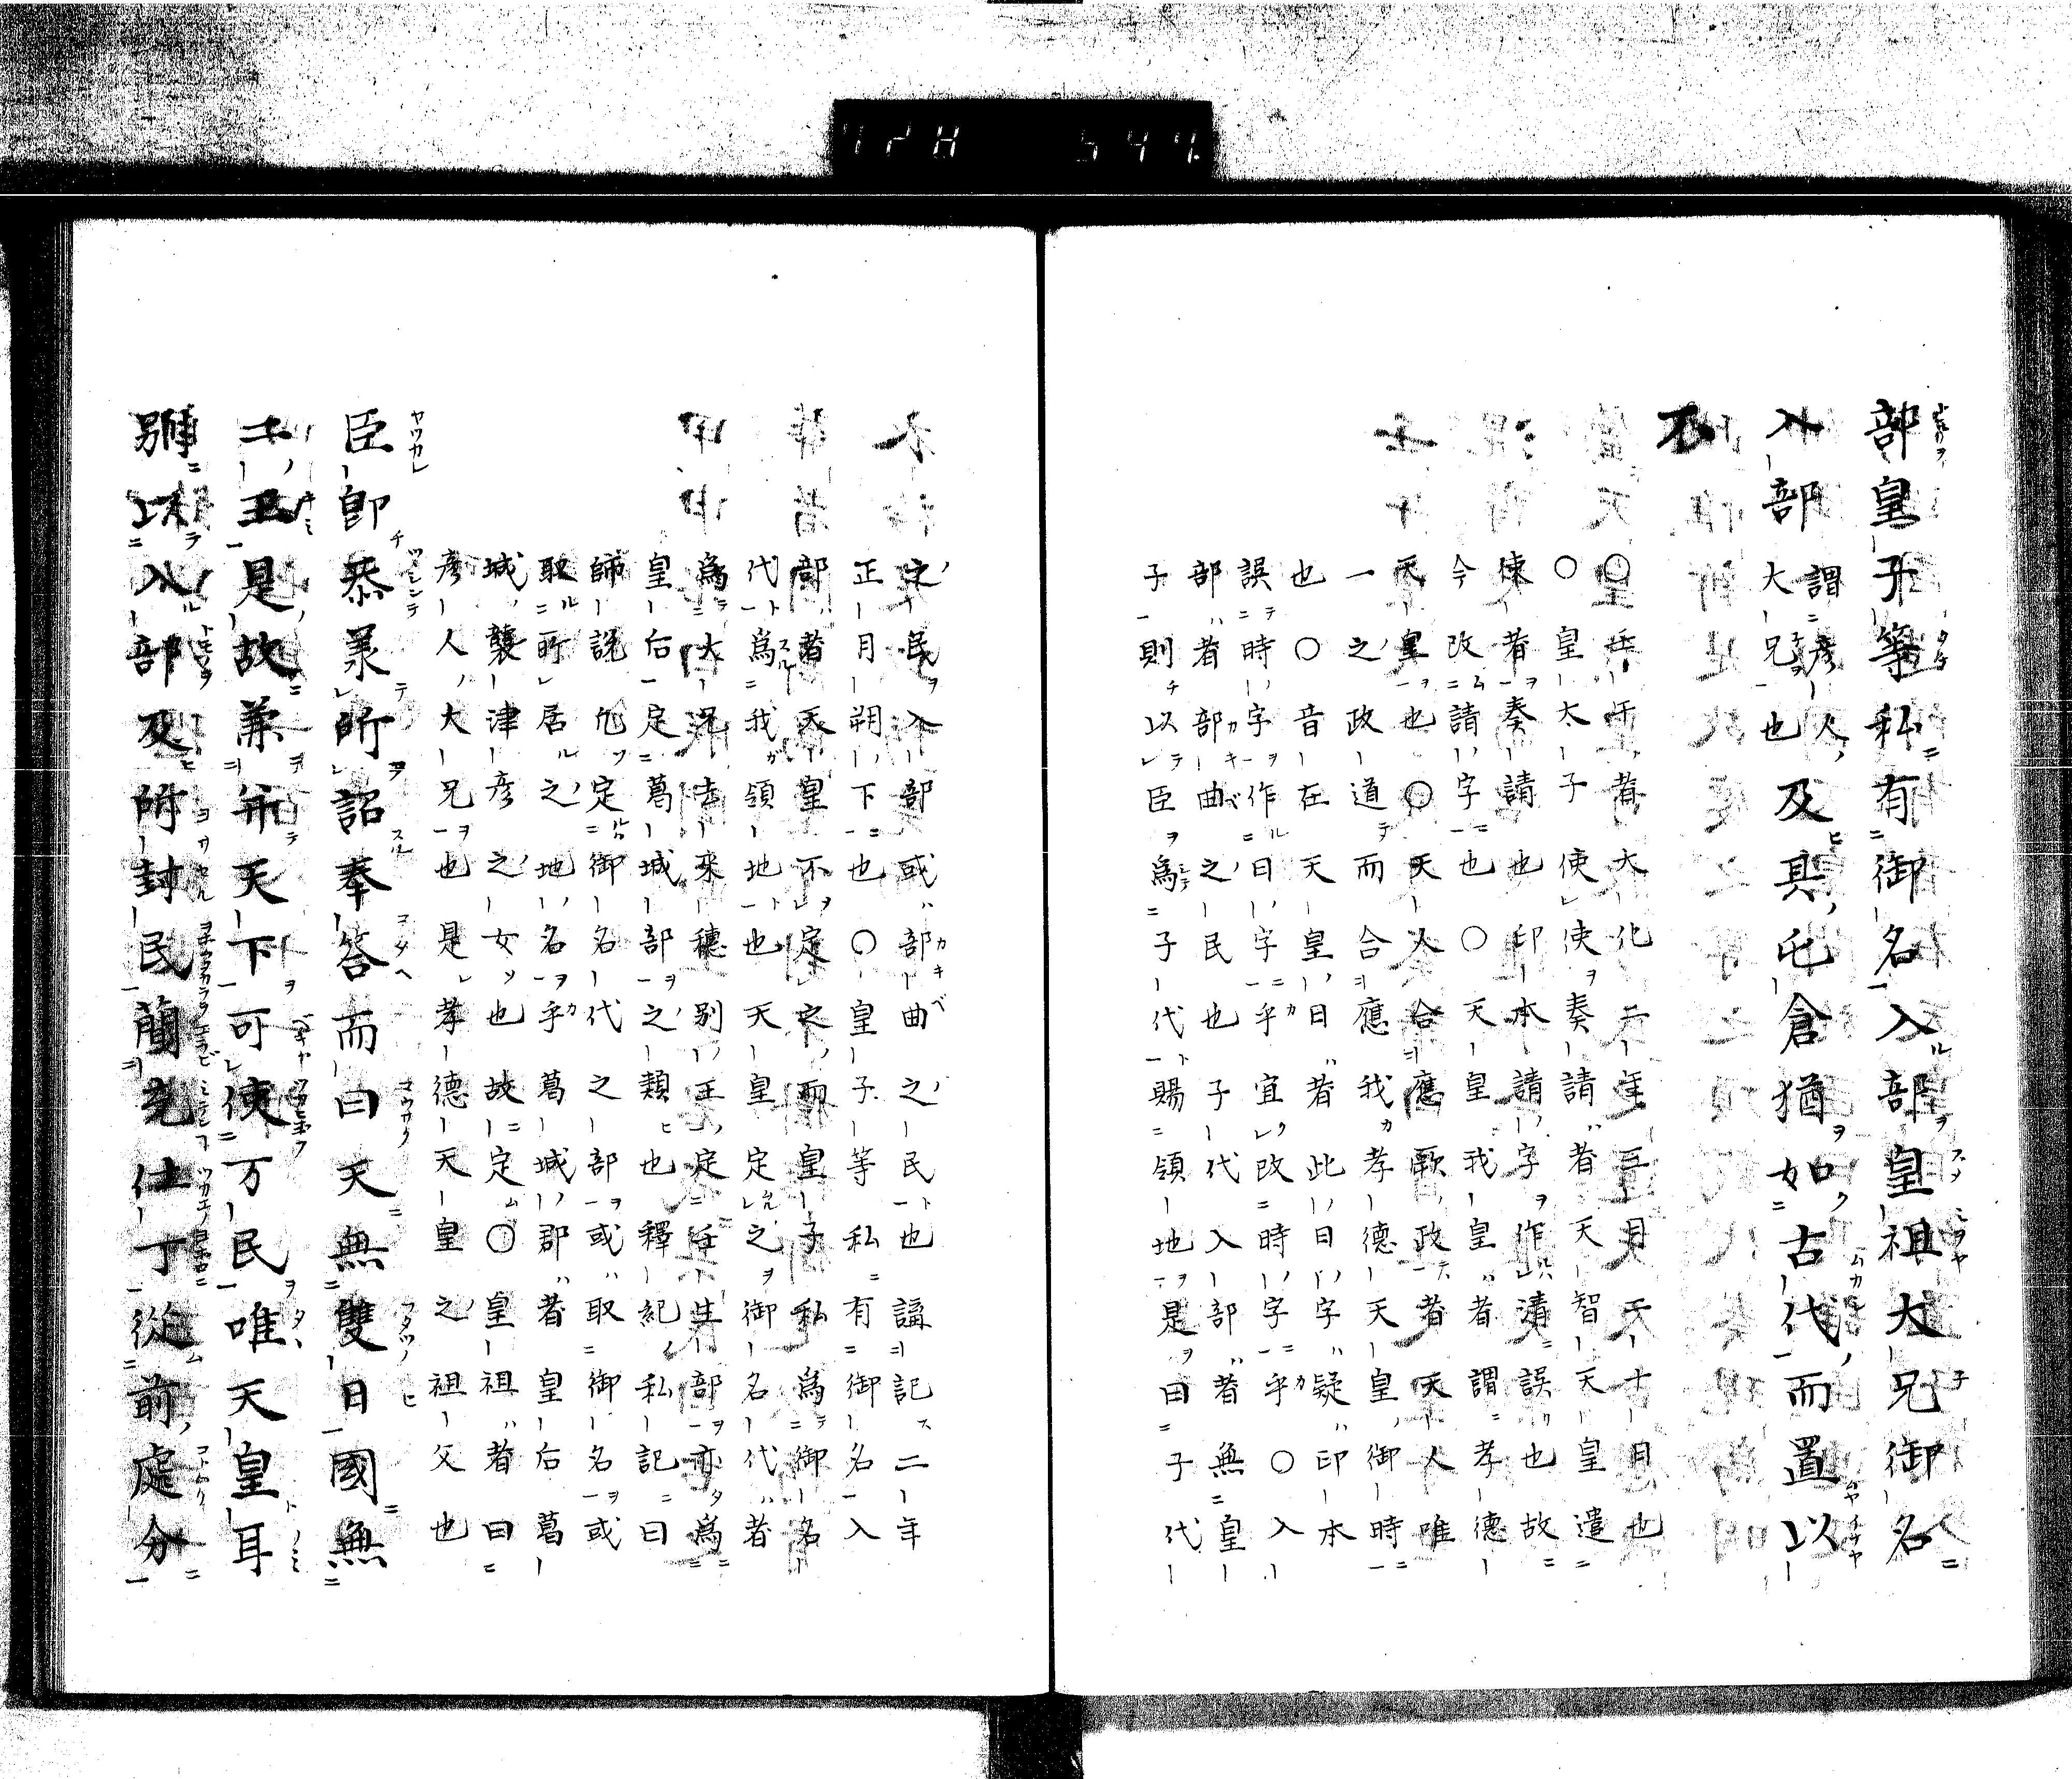 部皇子等私有御名入部皇祖大兄御名
入部謂彦人大兄也及其屯倉猶如古代而置以
不
〇壬午者大化二年三月壬午日也
〇皇太子使使奏請者天智天皇遣
使者奏請也印本請字作清誤也故
今改請字也〇天皇我皇者謂孝德
天皇也〇天人合應厥政者天人唯
一之政道而合應我孝德天皇御時
也〇音在天皇曰者此曰字疑印本
誤時字作曰字乎宜改時字乎〇入
部者部曲之民也子代入部者無皇
子則以臣爲子代賜領地是曰子代
之民入部或部曲之民也謡記二年
正月朔下也〇皇子等私有御名入
部者天皇不定之而皇子私爲御名
代爲我領地也天皇定之御名代者
爲大兄去來穗別王定壬生部亦爲
皇后定葛城部之類也釋紀私記曰
師說凢定御名代之部或取御名或
取所居之地名乎葛城郡者皇后葛
城襲津彦之女也故定〇皇祖者曰
彦人大兄也是孝德天皇之祖父也
臣卽恭羕所詔奉答而曰天無雙日國無
二王是故兼并天下可使万民唯天皇耳
別以入部及所封民簡充仕丁從前處分